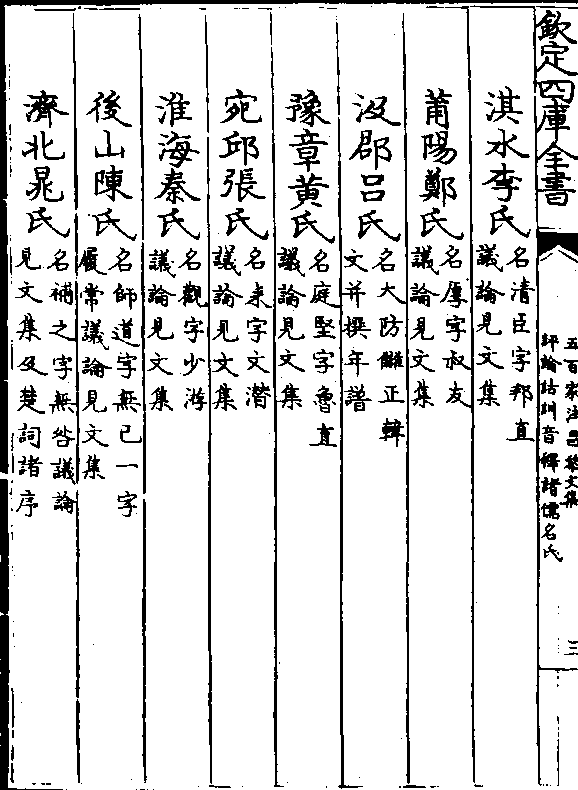 欽定四庫全書
五百家注昌黎文集
評論詁訓音釋諸儒名氏
三
淇水李氏
名清臣字邦直
議論見文集
莆陽鄭氏
名厚字叔友
議論見文集
汲郡呂氏
名大防雠正韓
文并撰年譜
豫章黃氏
名庭堅字魯直
議論見文集
宛邱張氏
名耒字文潛
議論見文集
淮海秦氏
名觀字少游
議論見文集
後山陳氏
名師道字無已一字
履常議論見文集
濟北晁氏
名補之字無咎議論
見文集及楚詞諸序